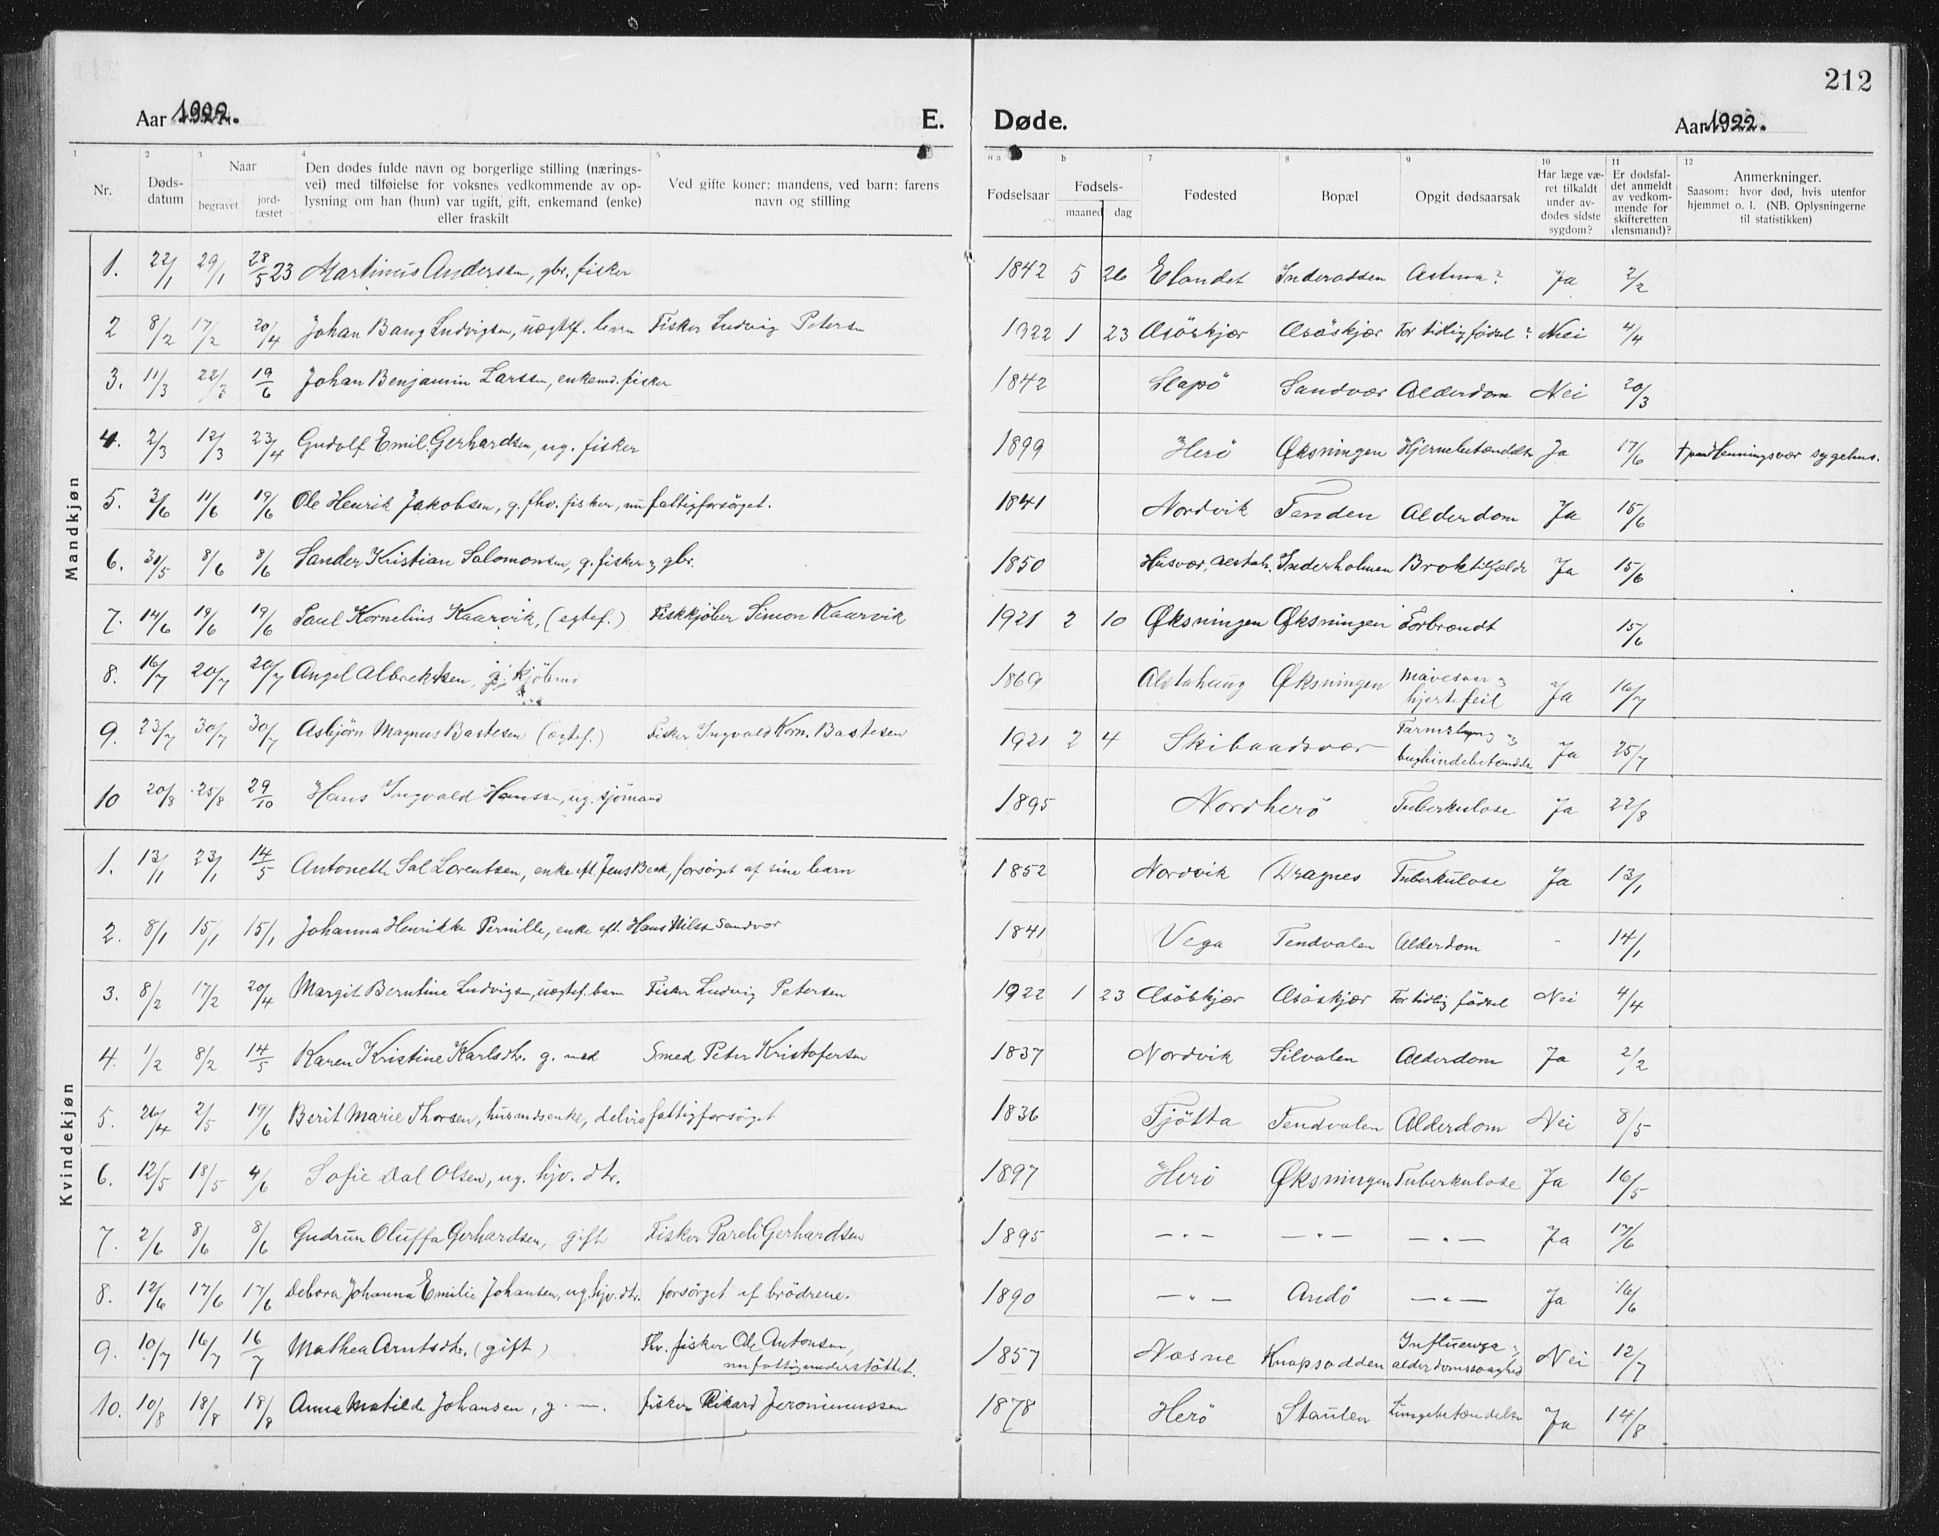 212
Aar 1922.
E.
Døde.
Aar 1922.
1 2 3 4 5 6 a b 7 8 9 10 11 12
Nr.
Døds-
datum
Naar
begravet
jord-
fæstet
Den dødes fulde navn og borgerlige stilling (nærings-
vei) med tilføielse for voksnes vedkommende av op-
lysning om han (hun) var ugift, gift, enkemand (enke)
eller fraskilt
Ved gifte koner: mandens, ved barn: farens
navn og stilling
Fødselsaar
Fødsels-
maaned dag
Fødested
Bopæl
Opgit dødsaarsak
Har læge væ-
ret tilkaldt
under av-
dødes sidste
sygdom?
Er dødsfal-
det anmeldt
av vedkom-
mende for
skifteretten
(lensmand)?
Anmerkninger.
Saasom: hvor død, hvis utenfor
hjemmet o. l. (NB. Oplysningerne
til statistikken)
Mandkjøn
1. 22/1 29/1 28/5 23 Martinus Anderssen, gbr. fisker 1842 5 26 Elandet Inderossen Astma? Ja 2/2
2 8/2 17/2 20/4 Johan Bang Ludvigsen, uægtef. barn Fisker Ludvig Petersen 1922 1 23 Asöskjær Asöskjær For tidlig födsel? Nei 4/4
3. 11/3 22/3 19/6 Johan Benjamin Larssen, enkemd. fisker 1842 Slapö Sandvær Alderdom Nei 20/3
4. 2/3 12/3 23/4 Gudolf Emil Gerhardsen, ug. fisker 1899 Herö Øksningen Hjernebetændelse Ja 17/6 † paa Henningsvær sygehus.
5. 3/6 11/6 19/6 Ole Henrik Jakobsen, g. fhv. fisker, nu fattigforsörget. 1841 Nordvik Tenden Alderdom Ja 15/6
6. 31/5 8/6 8/6 Sander Kristian Salomonsen, g. fisker og gbr. 1850 Husvær, Alstah. Inderholmen Broktilfælde Ja 15/6
7. 14/6 19/6 19/6 Paul Kornelius Kaarvik, (egtef.) Fiskkjöber Simon Kaarvik 1921 2 10 Øksningen Øksningen Forbrændt 15/6
8. 16/7 20/7 20/7 Angel Albrektsen, g. kjöbmd 1869 Alstahaug Øksningen Mavesaar og
hjertefeil Ja 16/7
9. 23/7 30/7 30/7 Asbjörn Magnus Bastesen (egtef.) Fisker Ingvald Korn. Bastesen 1921 2 4 Skibaadsvær Tarmslyng og
bughindebetændelse Ja 25/7
10 20/8 25/8 29/10 Hans Ingvald Hanssen, ug. sjömand 1895 Nordherö Tuberkulose Ja 22/8
Kvindekjøn
1. 13/1 23/1 14/5 Antonette Sal Lorentsen, enke eft. Jens Beck, forsörget af sine barn 1852 Nordvik Dragnes Tuberkulose Ja 13/1
2. 8/1 15/1 15/1 Johanna Henrikke Pernille, enke eft. Hans Nilsen Sandvær 1841 Vega Tendvalen Alderdom - 14/1
3. 8/2 17/2 20/4 Margit Berntine Ludvigsen, uægtef. barn Fisker Ludvig Petersen 1922 1 23 Asöskjær Asöskjær For tidlig födsel Nei 4/4
4. 1/2 8/2 14/5 Karen Kristine Karlsdtr. g. med Smed Peter Kristofersen 1837 Nordvik Silvalen Alderdom Ja 2/2
5. 26/4 2/5 19/6 Berit Marie Thorsen, husmdsenke, delvis fattigforsörget 1836 Tjötta Tendvalen Alderdom Nei 8/5
6. 12/5 18/5 4/6 Sofie Dal Olsen, ug. hjv. dtr. 1897 Herö Øksningen Tuberkulose Ja 16/5
7. 2/6 8/6 8/6 Gudrun Oluffa Gerhardsen, gift Fisker Pareli Gerhardsen 1895 —"— —"— —"— Ja 17/6
8. 12/6 17/6 17/6 Debora Johanna Emilie Johansen, ug. hjv. dtr. forsörget af brödrene. 1890 —"— Andö —"— Ja 16/6
9. 10/7 16/7 16/7 Mathea Arntsdtr. (gift) Fhv. fisker Ole Antonsen,
nu fattigunderstöttet. 1857 Næsne Knapsodden Influenza og
alderdomssvaghed Nei 12/7
10. 10/8 18/8 18/8 Anna Matilde Johansen, g. —. fisker Rikard Jeronimussen 1878 Herö Staulen Lungebetændelse Ja 14/8